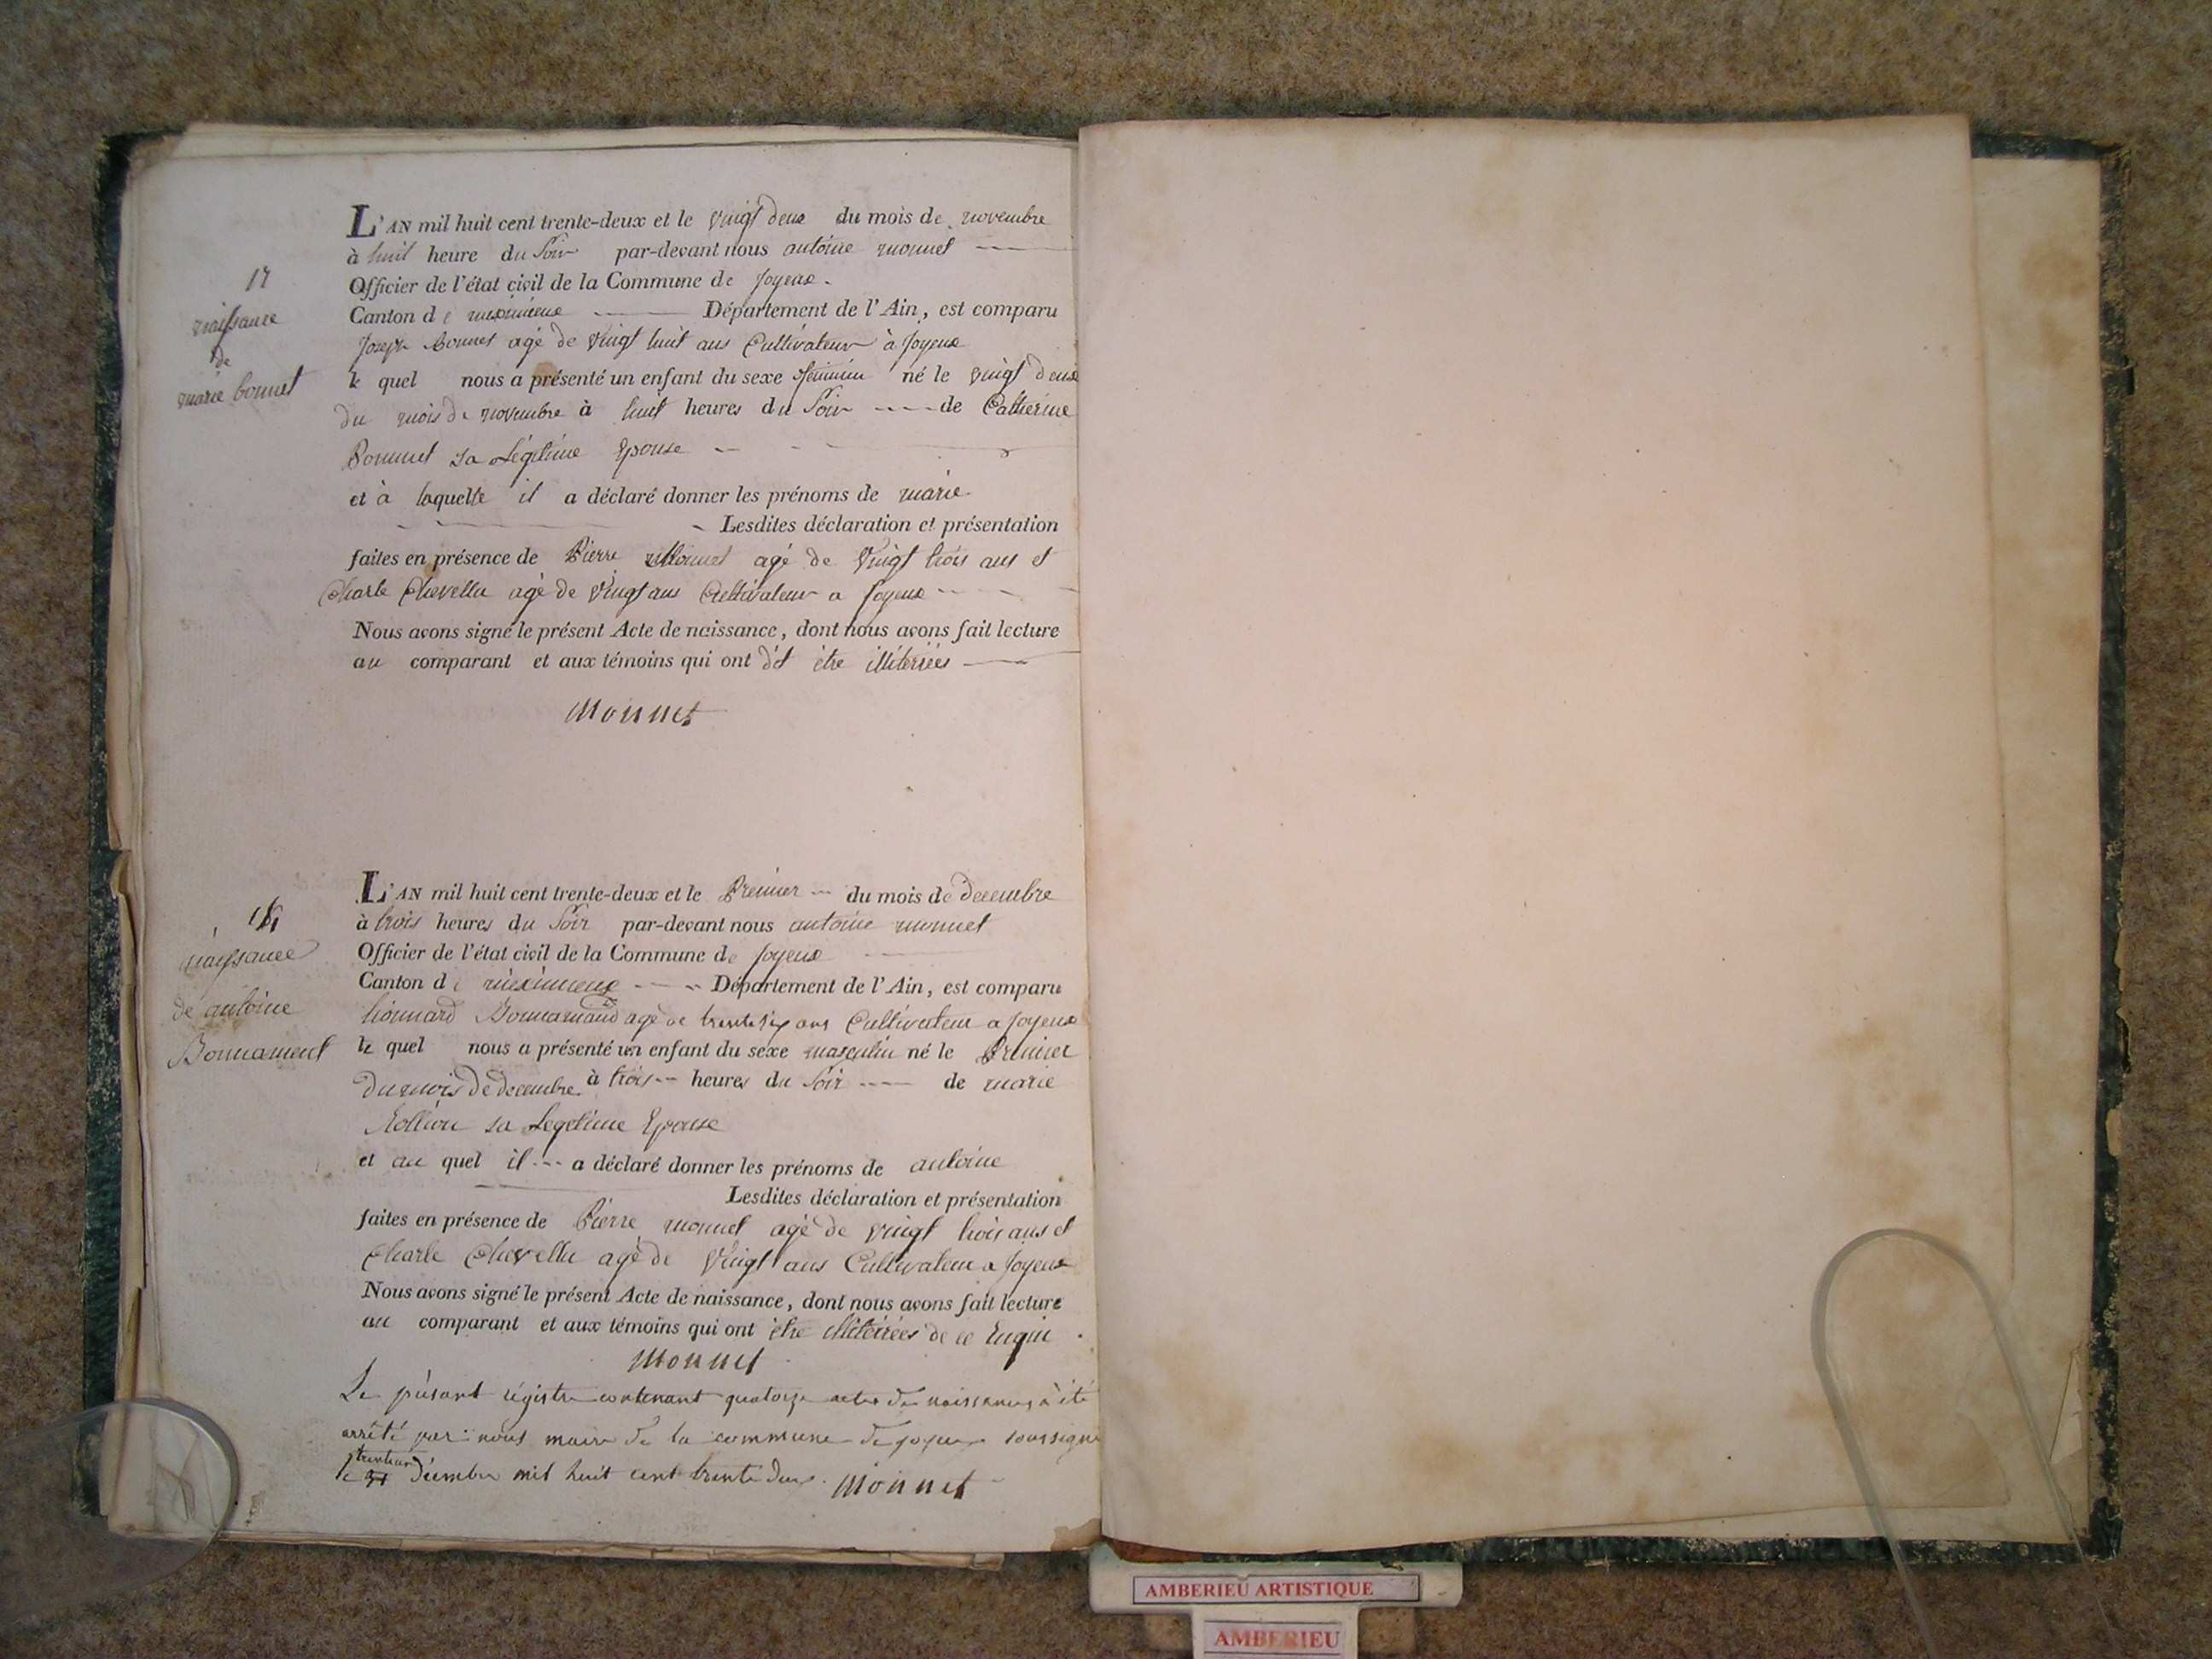 17
naissance
de
marie bonnet
L'AN mil huit cent trente-deux et le vingt deux du mois de novembre
à huit heure du Soir par-devant nous antoine monnet
Officier de l'état civil de la Commune de Joyeux
Canton de meximieux Département de l'Ain, est comparu
Joseph bonnet agé de vingt huit ans Cultivateur à Joyeux
le quel nous a présenté un enfant du sexe féminin né le vingt deux
du mois de novembre à huit heures du Soir de Catherine
sa Légitime Epouse
et à laquelle il a déclaré donner les prénoms de marie
Lesdites déclaration et présentation
faites en présence de Pierre Monnet agé de vingt trois ans et
Charle Chevellu agé de vingt ans Cultivateur a Joyeux
Nous avons signé le présent Acte de naissance, dont nous avons fait lecture
au comparant et aux témoins qui ont dit être illiterrées
Monnet
naissance
de antoine
Bonnament
L'AN mil huit cent trente-deux et le Premier du mois de decembre
à trois heures du Soir par-devant nous antoine monnet
Officier de l'état civil de la Commune de Joyeux
Canton de meximieux Département de l'Ain, est comparu
lionnard Bonnamand agé de trente six ans Cultivateur a Joyeux
le quel nous a présenté un enfant du sexe masculin né le Premier
du mois de decembre à trois heures du Soir de marie
sa Legetime Epouse
et au quel il a déclaré donner les prénoms de antoine
Lesdites déclaration et présentation
faites en présence de Pierre monnet agé de vingt trois ans et
Charle Chevellu agé de Vingt ans Cultivateur a Joyeux
Nous avons signé le présent Acte de naissance, dont nous avons fait lecture
au comparant et aux témoins qui ont être illitéirées de ce Enquis
Monnet
Le présent régistre contenant quatorze actes de naissances à été
arrêté par nous maire de la commune de joyeux soussigné
le trenteun décembre mil huit cent trente deux. Monnet
AMBERIEU ARTISTIQUE
AMBERIEU